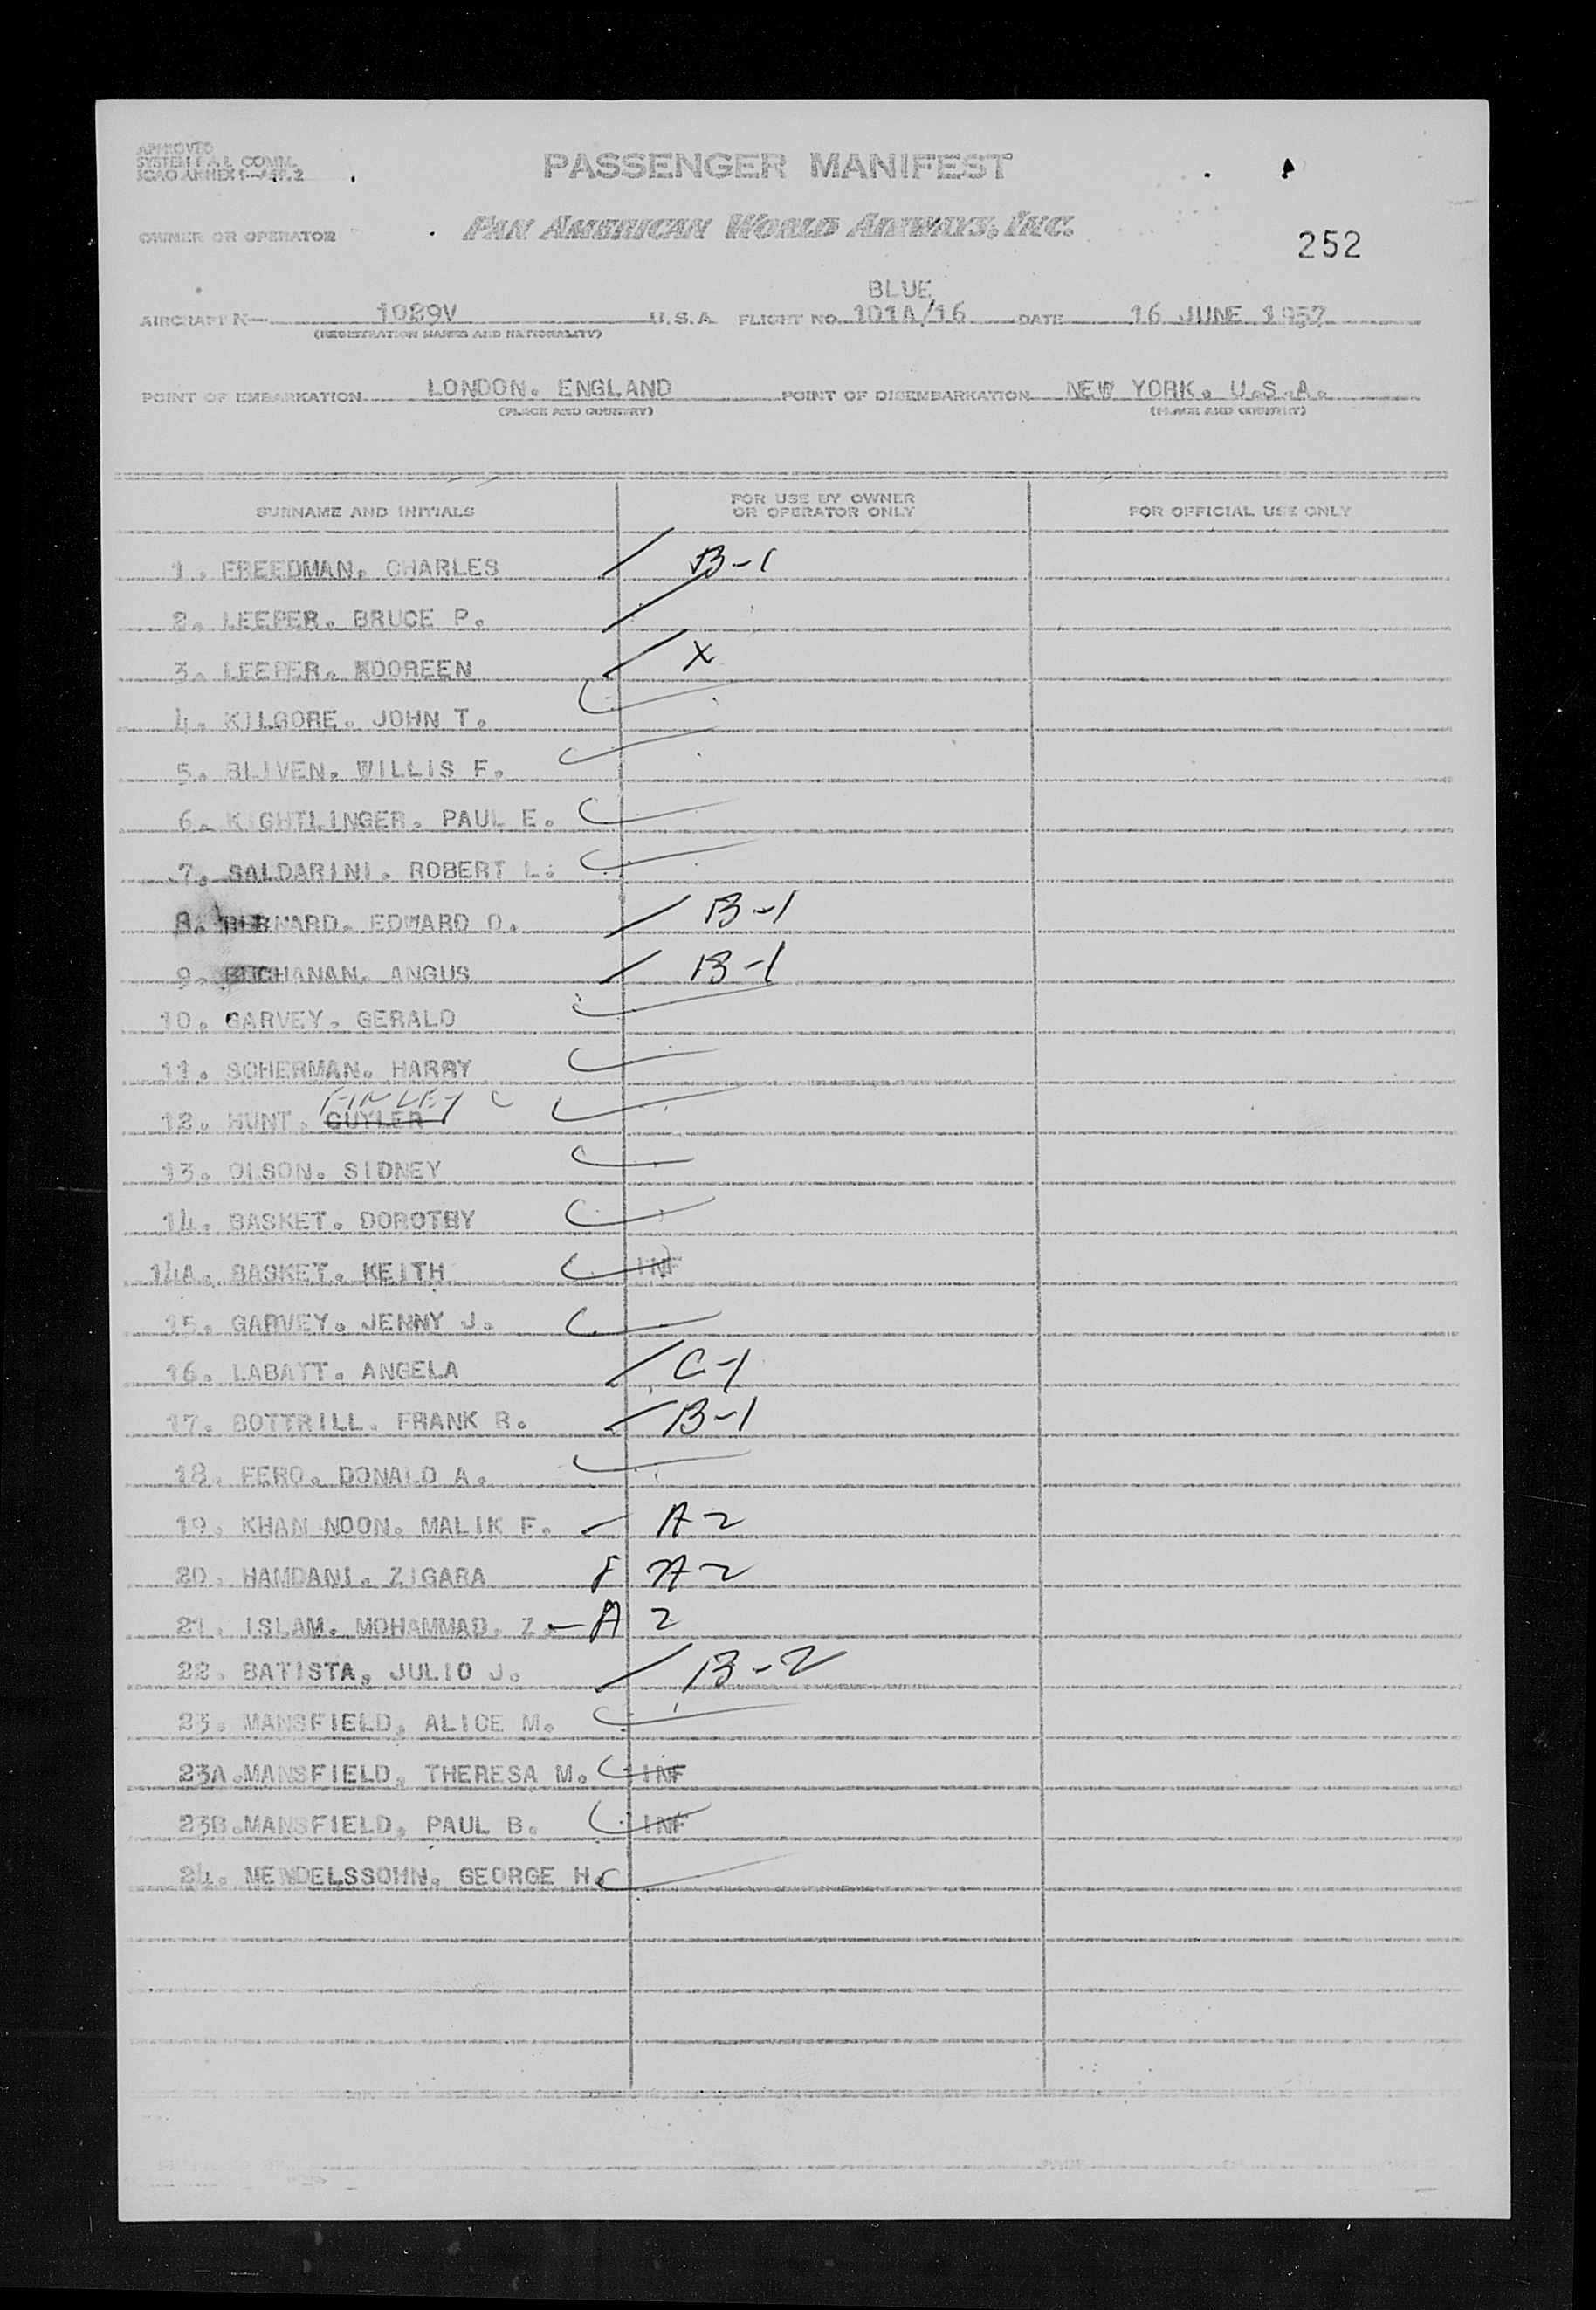 APPROVED
SYSTEM F.A.L. COMM.
ICAO ANNEX 9—APP. 2
PASSENGER MANIFEST
OWNER OR OPERATOR PAN AMERICAN WORLD AIRWAYS, INC.
252
BLUE
AIRCRAFT N— 1029V U.S.A. FLIGHT NO. 101A/16 DATE 16 JUNE 1957
(REGISTRATION MARKS AND NATIONALITY)
POINT OF EMBARKATION LONDON. ENGLAND POINT OF DISEMBARKATION NEW YORK. U.S.A.
(PLACE AND COUNTRY) (PLACE AND COUNTRY)
SURNAME AND INITIALS FOR USE BY OWNER OR OPERATOR ONLY FOR OFFICIAL USE ONLY
1. FREEDMAN. CHARLES B-1
2. LEEPER. BRUCE P.
3. LEEPER. DOREEN X
4. KILGORE. JOHN T.
5. BIJVEN. WILLIS F.
6. KIGHTLINGER. PAUL E.
7. SALDARINI. ROBERT L.
8. BERNARD. EDWARD O. B-1
9. BUCHANAN. ANGUS B-1
10. GARVEY. GERALD
11. SCHERMAN. HARRY
FINLEY C
12. HUNT. CUYLER
13. OLSON. SIDNEY
14. BASKET. DOROTHY
14A. BASKET. KEITH INF
15. GARVEY. JENNY J.
16. LABATT. ANGELA C-1
17. BOTTRILL. FRANK R. B-1
18. FERO. DONALD A.
19. KHAN NOON. MALIK F. A 2
20. HAMDANI. ZIGARA A 2
21. ISLAM. MOHAMMAD. Z. A 2
22. BATISTA. JULIO J. B-2
23. MANSFIELD. ALICE M.
23A. MANSFIELD. THERESA M. INF
23B. MANSFIELD. PAUL B. INF
24. MENDELSSOHN. GEORGE H.